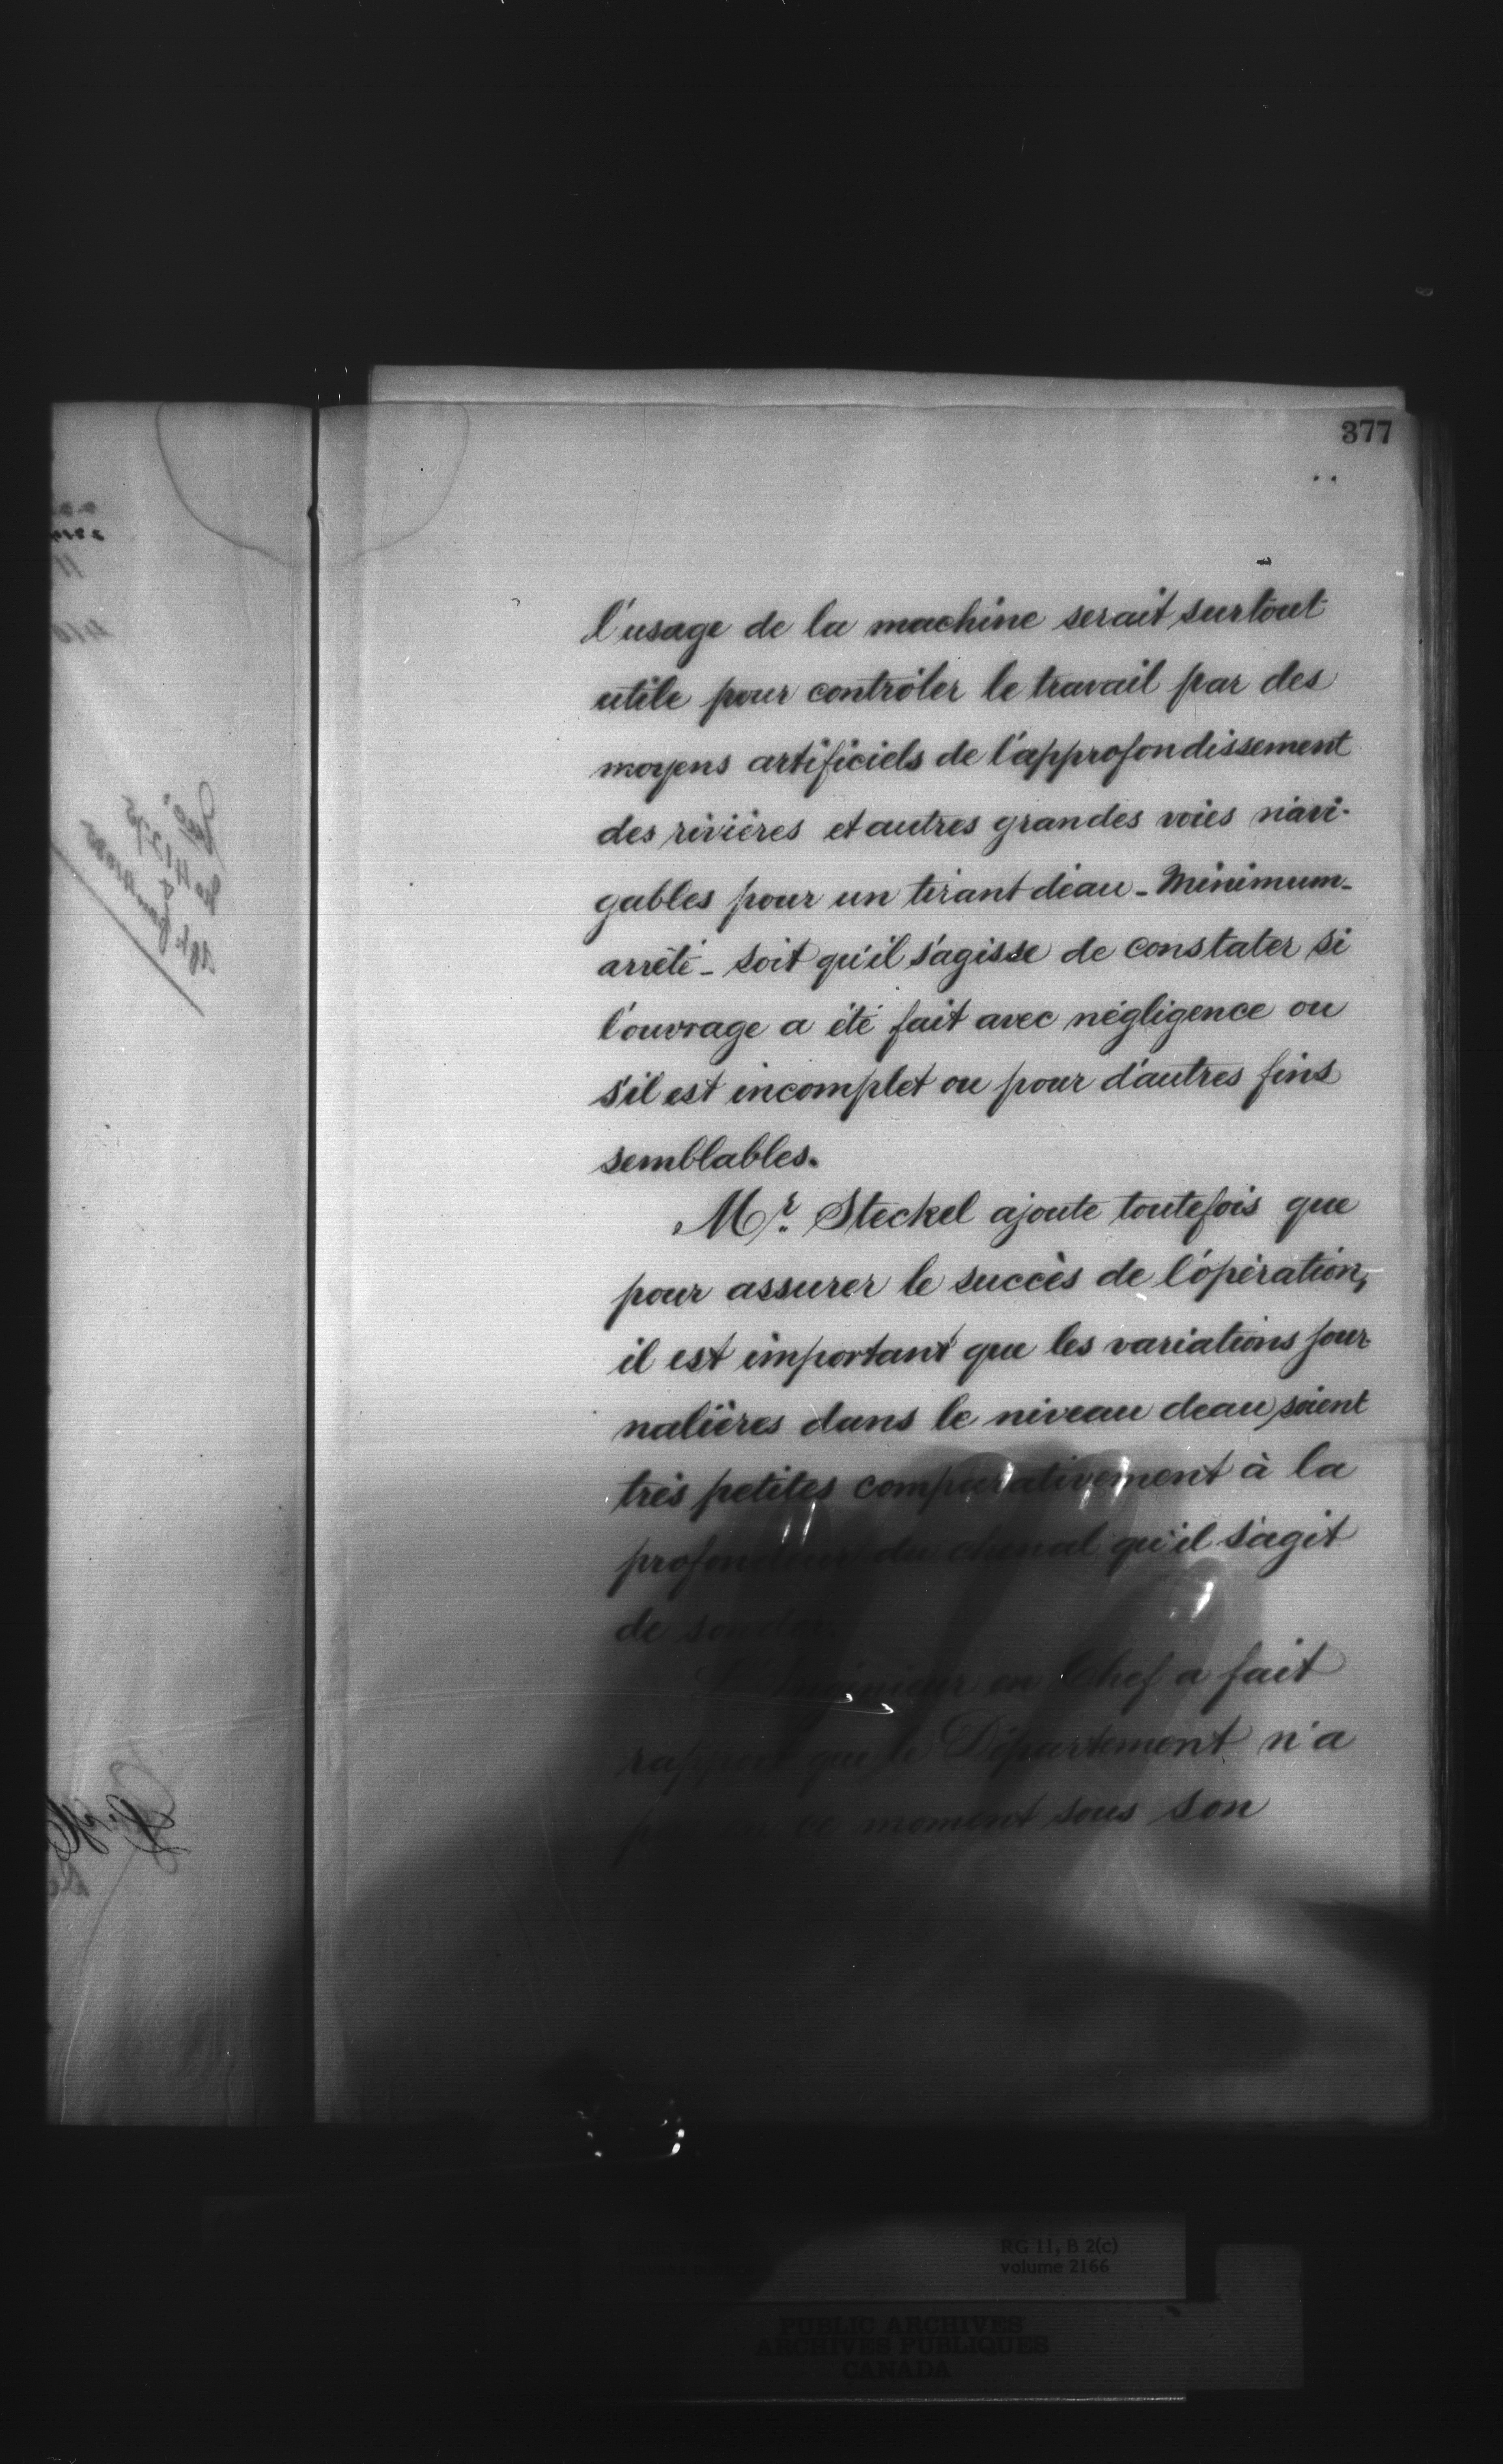 377
l'usage de la machine serait surtout
utile pour contrôler le travail par des
moyens artificiels de l'approfondissement
des rivières et autres grandes voies navi-
gables pour un tirant d'eau - Minimum -
arrêté - soit qu'il s'agisse de constater si
l'ouvrage a été fait avec négligence ou
s'il est incomplet ou pour d'autres fins
semblables.
Mr. Steckel ajoute toutefois que
pour assurer le succès de l'opération,
il est important que les variations jour-
nalières dans le niveau d'eau soient
très petites comparativement à la
profondeur du chenal qu'il s'agit
de sonder.
L'Ingénieur en Chef a fait
rapport que le Département n'a
pas en ce moment sous son
RG 11, B 2(c)
volume 2166
PUBLIC ARCHIVES
ARCHIVES PUBLIQUES
CANADA